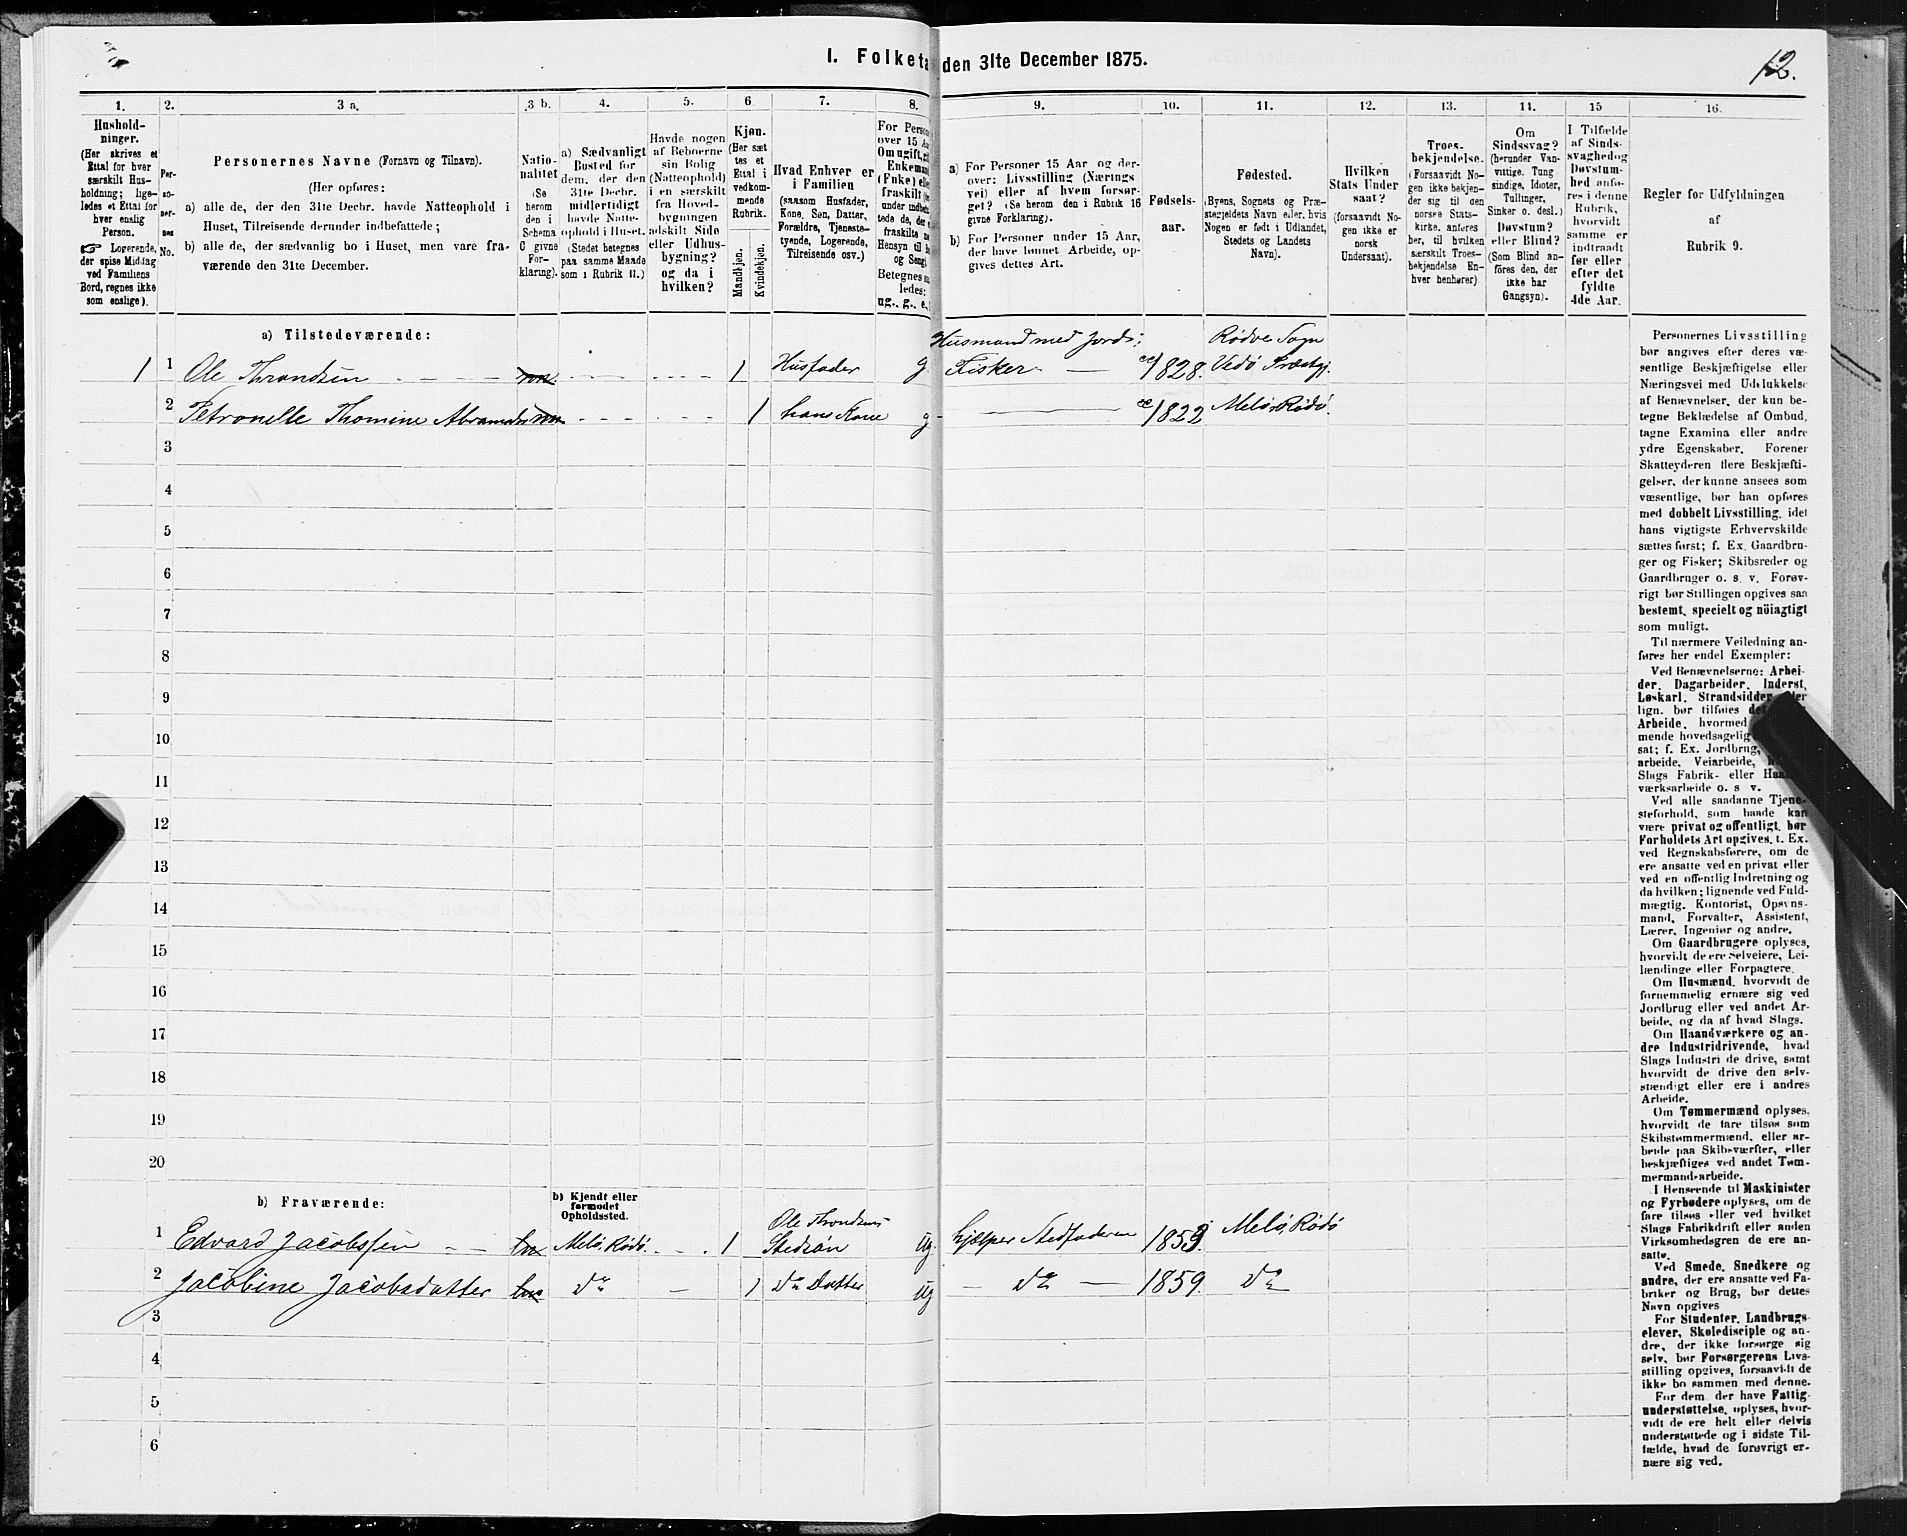 I. Folketa den 31te December 1875.
12.
1.
2.
3 a.
3 b.
4.
5.
6
7.
8.
9.
10.
11.
12.
13.
14.
15
16.
Hushold-
ninger.
(Her skrives et
Ettal for hver
særskilt Hus-
holdning; lige-
ledes et Ettal for
hver enslig
Person.
☞ Logerende,
der spise Middag
ved Familiens
Bord, regnes ikke
som enslige).
Per-
so-
ner-
nes
No.
Personernes Navne (Fornavn og Tilnavn).
(Her opføres:
a) alle de, der den 31te Decbr. havde Natteophold i
Huset, Tilreisende derunder indbefattede;
b) alle de, der sædvanlig bo i Huset, men vare fra-
værende den 31te December.
Natio-
nalitet
(Se
herom
den i
Schema
C givne
For-
klaring).
a) Sædvanligt
Bosted for
dem, der den
31te Decbr.
midlertidigt
havde Natte-
ophold i Huset.
(Stedet betegnes
paa samme Maade
som i Rubrik 11.)
Havde nogen
af Beboerne
sin Bolig
(Natteophold)
i en særskilt
fra Hoved-
bygningen
adskilt Side
eller Udhus-
bygning?
og da i
hvilken?
Kjøn.
(Her sæt
tes et
Ettal i
vedkom-
mende
Rubrik.
Mandkjøn.
Kvindekjøn.
Hvad Enhver er
i Familien
(saasom Husfader,
Kone, Søn, Datter,
Forældre, Tjeneste-
tyende, Logerende,
Tilreisende osv.)
For Perso
over 15 A
Om ugift, g
Enkeman
(Enke) elle
fraskilt
under indbe
tede de, der
fraskilte
Hensyn til b
og Seng)
Betegnes s
ledes:
ug., g., e.,
a) For Personer 15 Aar og der-
over: Livsstilling (Nærings
vei) eller af hvem forsør-
get? (Se herom den i Rubrik 16
givne Forklaring).
b) For Personer under 15 Aar,
der have lønnet Arbeide, op-
gives dettes Art.
Fødsels-
aar.
Fødested.
(Byens, Sognets og Præ-
stegjeldets Navn eller, hvis
Nogen er født i Udlandet,
Stedets og Landets
Navn).
Hvilken
Stats Under
saat?
(forsaavidt No-
gen ikke er
norsk
Undersaat).
Troes-
bekjendelse.
(Forsaavidt No-
gen ikke bekjen-
der sig til den
norske Stats-
kirke, anføres
her, til hvilken
særskilt Troes-
bekjendelse En-
hver henhører)
Om
Sindssvag?
(herunder Van-
vittige, Tung
sindige, Idioter,
Tullinger,
Sinker o. desl.)
Døvstum?
eller Blind?
(Som Blind an-
føres den, der
ikke har
Gangsyn).
I Tilfælde
af Sinds-
svaghed og
Døvstum-
hed anfø-
res i denne
Rubrik,
hvorvidt
samme er
indtraadt
før eller
efter det
fyldte
4de Aar.
Regler for Udfyldningen
af
Rubrik 9.
a) Tilstedeværende:
Husmand med Jord; Rödve Sogn
1 1 Ole Throndsen nn. 1 Husfader g Fisker 1828. Vedö Præstgj.
2 Petronelle Thomine Abramsdtr nn 1 hans Kone g 1822 Melö, Rödö.
3
4
5
6
7
8
9
10
11
12
13
14
15
16
17
18
19
20
b) Fraværende:
b) Kjendt eller
formodet
Opholdssted.
Ole Throndsens
1 Edvard Jacobssen nn Melö, Rödö. 1 Stedsön ug. hjælper Stedfaderen 1853. Melö, Rödö
2 Jacobine Jacobsdatter nn do 1 do Datter ug do 1859. do
3
4
5
6
Personernes Livsstilling
bør angives efter deres væ-
sentlige Beskjæftigelse eller
Næringsvei med Udelukkelse
af Benævnelser, der kun be-
tegne Beklædelse af Ombud,
tagne Examina eller andre
ydre Egenskaber. Forener
Skatteyderen flere Beskjæfti-
gelser, der kunne ansees som
væsentlige, bør han opføres
med dobbelt Livsstilling, idet
hans vigtigste Erhvervskilde
sættes først; f. Ex. Gaardbru-
ger og Fisker; Skibsreder og
Gaardbruger o. s. v. Forøv-
rigt bør Stillingen opgives saa
bestemt, specielt og nøiagtigt
som muligt.
Til nærmere Veiledning an-
føres her endel Exempler:
Ved Benævnelserne: Arbei-
der, Dagarbeider, Inderst,
Løskarl, Strandsidder eller
lign. bør tilføies de
Arbeide, hvormed
mende hovedsagelig
sat; f. Ex. Jordbrug,
arbeide, Veiarbeide,
Slags Fabrik- eller Haa
værksarbeide o. s v.
Ved alle saadanne Tjene-
steforhold, som baade kan
være privat og offentligt, bør
Forholdets Art opgives, t. Ex.
ved Regnskabsførere, om de
ere ansatte ved en privat eller
ved en offentlig Indretning og
da hvilken; lignende ved Fuld-
mægtig, Kontorist, Opsyns-
mand, Forvalter, Assistent,
Lærer, Ingeniør og andre.
Om Gaardbrugere oplyses,
hvorvidt de ere Selveiere, Lei-
lændinge eller Forpagtere.
Om Husmænd, hvorvidt de
fornemmelig ernære sig ved
Jordbrug eller ved andet Ar-
beide, og da af hvad Slags.
Om Haandværkere og an-
dre Industridrivende, hvad
Slags Industri de drive, samt
hvorvidt de drive den selv-
stændigt eller ere i andres
Arbeide.
Om Tømmermænd oplyses,
hvorvidt de fare tilsøs som
Skibstømmermænd, eller ar-
beide paa Skibsværfter, eller
beskjæftiges ved andet Tøm-
mermandsarbeide.
I Henseende til Maskinister
og Fyrbødere oplyses, om de
fare tilsøs eller ved hvilket
Slags Fabrikdrift eller anden
Virksomhedsgren de ere an-
satte.
Ved Smede, Snedkere og
andre, der ere ansatte ved Fa-
briker og Brug, bør dettes
Navn opgives
For Studenter, Landbrugs-
elever, Skoledisciple og an-
dre, der ikke forsørge sig
selv, bør Forsørgerens Livs-
stilling opgives, forsaavidt de
ikke bo sammen med denne.
For dem, der have Fattig-
understøttelse, oplyses, hvor-
vidt de ere helt eller delvis
understøttede og i sidste Til-
fælde, hvad de forøvrigt er-
nære sig ved.